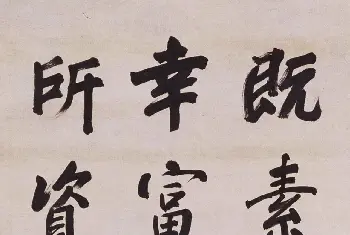 既素
幸富
所資